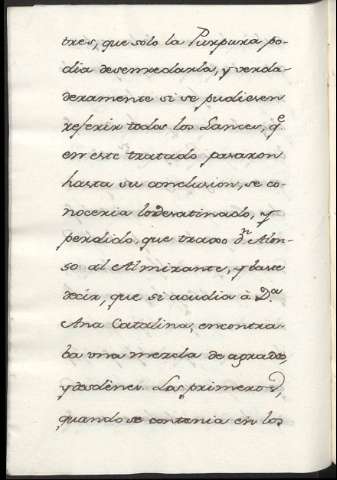 tres, que solo la Purpura po-
dia desenredarla, y verda-
deramente si se pudiesen
referir todos los Lances, q.e
en este tratado pasaron
hasta su conclusion, se co-
noceria lo desatinado, y
perdido, que traxo D.n Alon-
so al Almirante, y baste
decir, que si acudia à D.a
Ana Catalina, encontra-
ba una mezcla de agrados,
y desdenes. Los primeros,
quando se contenia en los